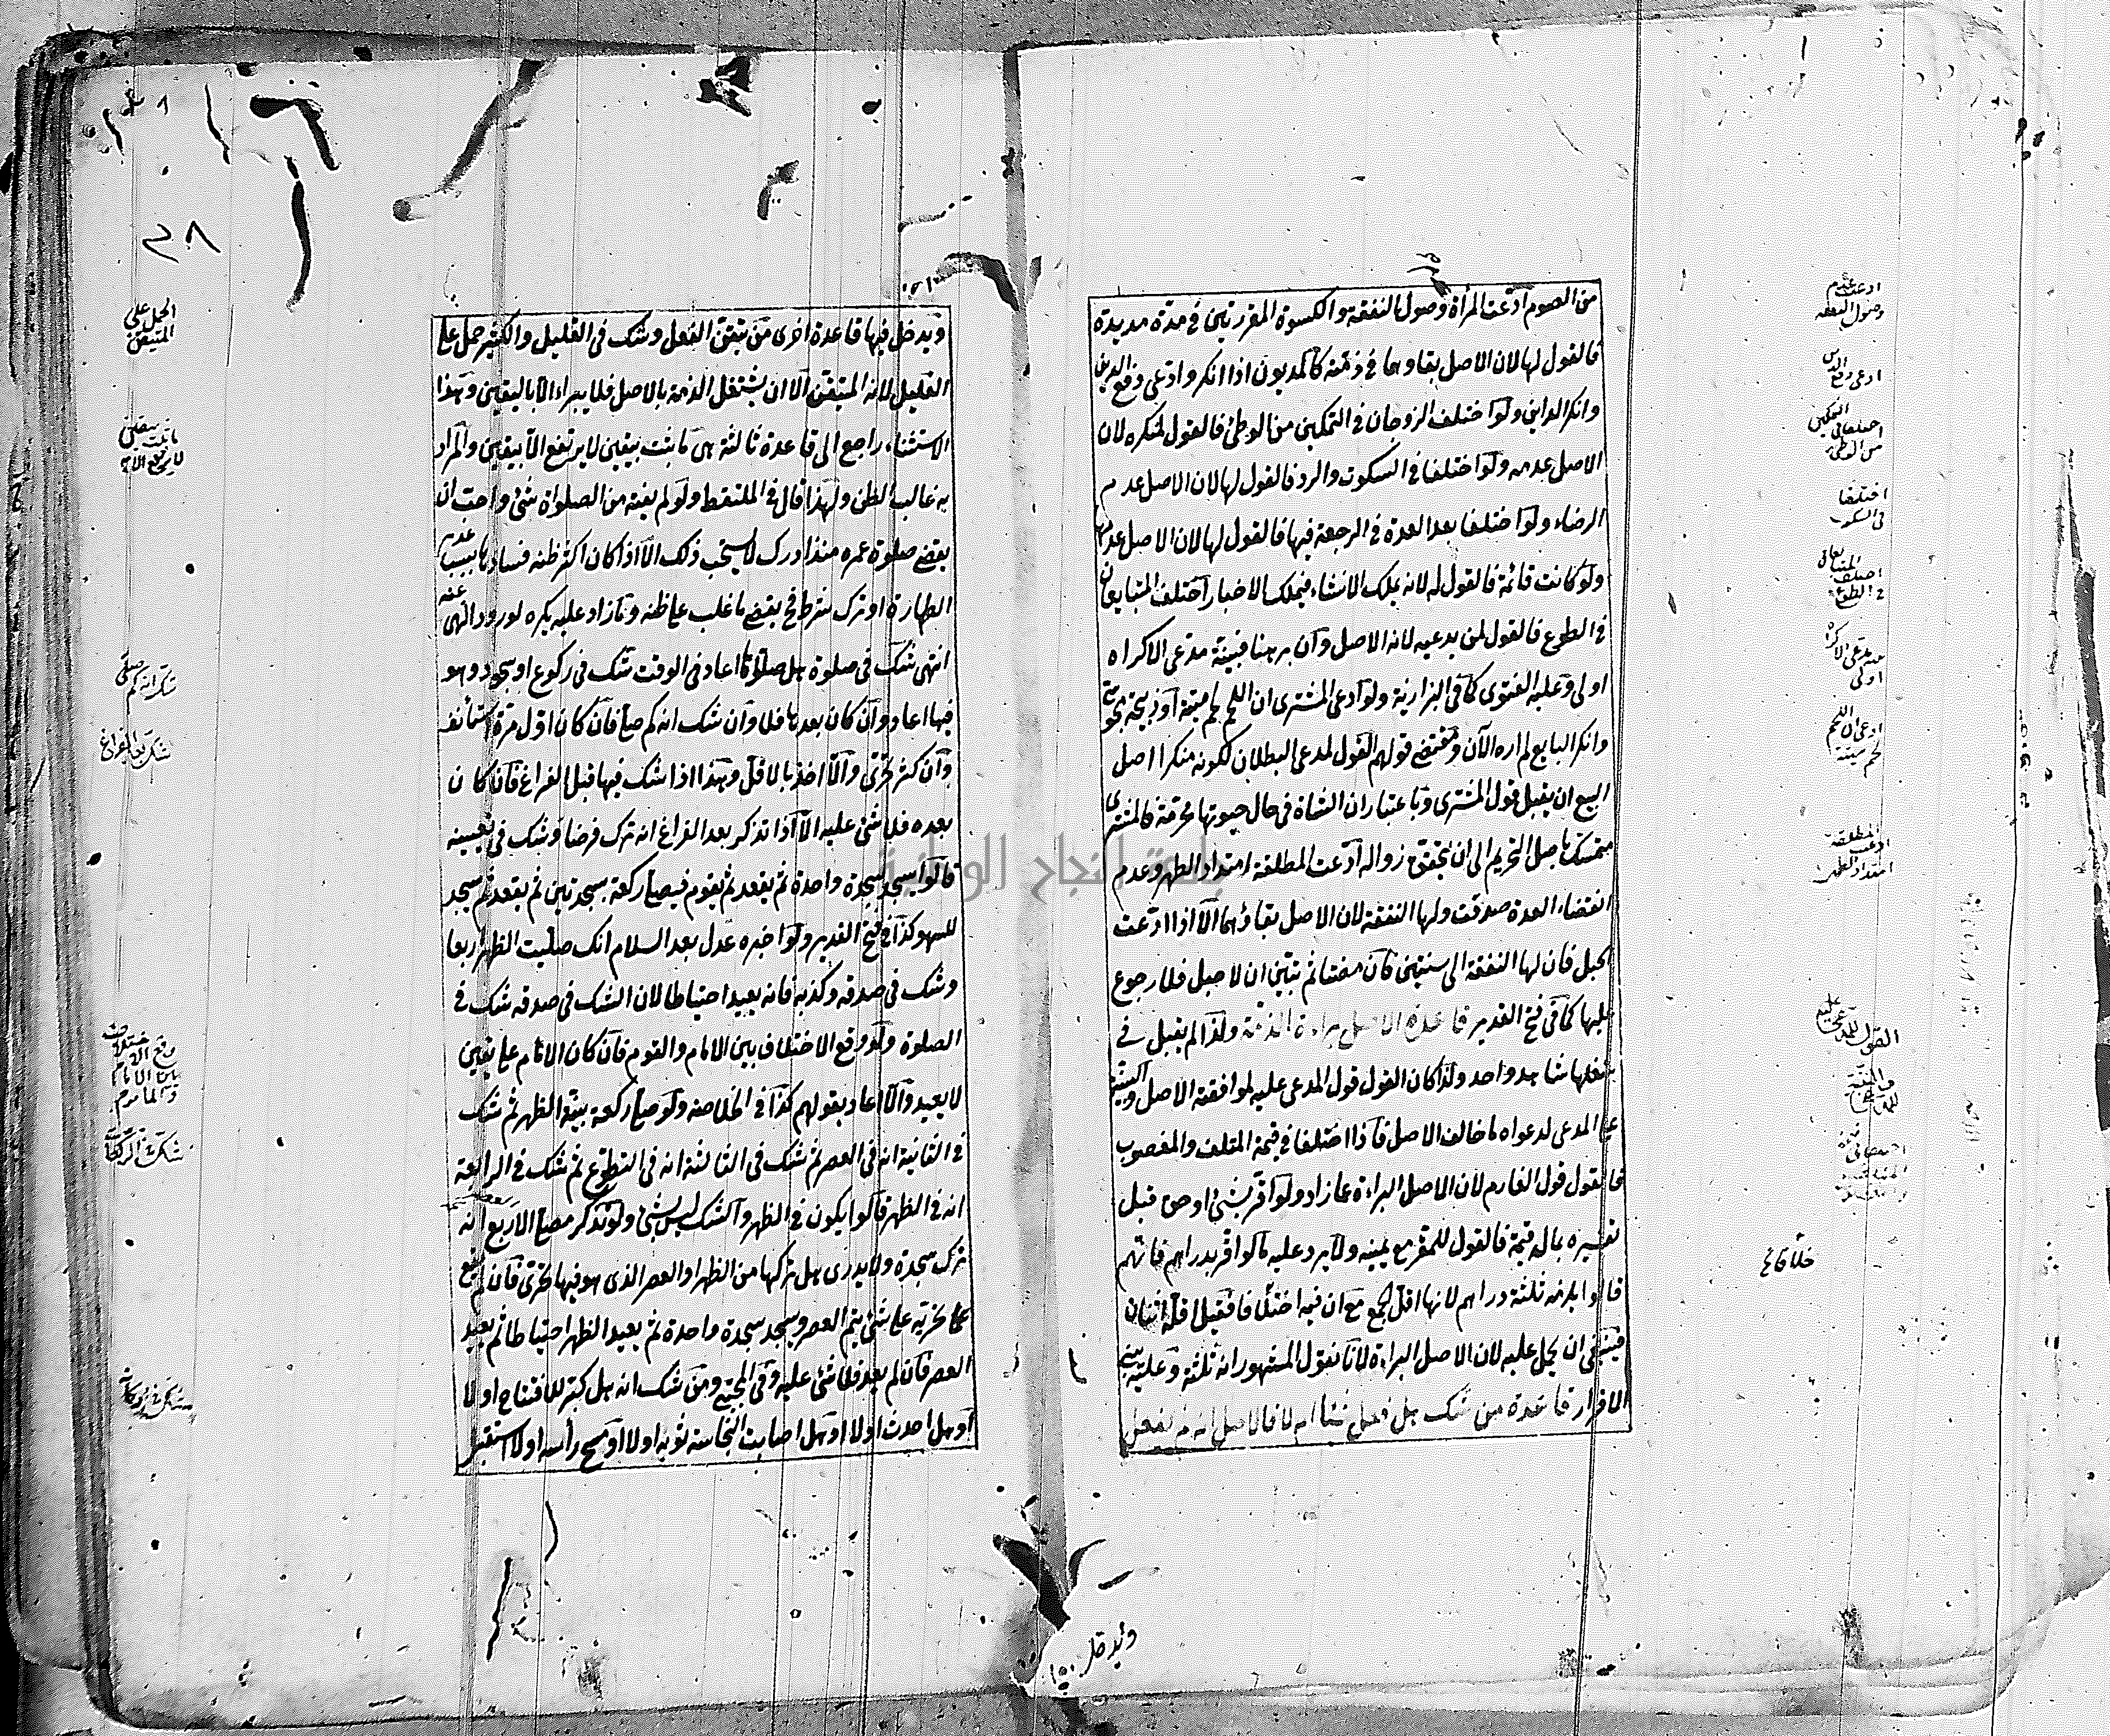 من الصوم ادعت المرأة وصول النفقة والكسوة المقررتين في مدة مديدة
فالقول لها لان الاصل بقاوهما في ذمته كالمديون اذا انكر وادعى دفع الدين
وانكر الداين ولو اختلف الزوجان في التمكين من الوطئ فالقول لمنكره لان
الاصل عدمه ولو اختلفا في السكوت والرد فالقول لها لان الاصل عدم
الرضاء ولو اختلفا بعد العدة في الرجعة فيها فالقول لها لان الاصل عدمها
ولو كانت قائمة فالقول له لانه يملك الانشاء فيملك الاخبار اختلف المتبايعان
في الطوع فالقول لمن يدعيه لانه الاصل وان برهنا فبينة مدعى الاكراه
اولى وعليه الفتوى كما في البزازية ولو ادعى المشترى ان اللحم لحم ميتة او ذبيحة مجوسي
وانكر البايع لم اره الآن ومقتضى قولهم القول لمدعى البطلان لكونه منكرا اصل
البيع ان يقبل قول المشترى وباعتبار ان الشاة في حال حيوتها محرمة فالمشترى
متمسك باصل التحريم الى ان يتحقق زواله ادعت المطلقة امتداد الطهر وعدم
انقضاء العدة صدقت ولها النفقة لان الاصل بقاؤها الا اذا ادعت
الحبل فان لها النفقة الى سنتين فان مضتا ثم تبين ان لا حبل فلا رجوع
عليها كما في فتح القدير قاعدة الاصل براءة الذمة ولذا لم يقبل في
شغلها شاهد واحد ولذا كان القول قول المدعى عليه لموافقته الاصل والبينة
على المدعى لدعواه ما خالف الاصل فاذا اختلفا في قيمة المتلف والمغصوب
فالقول قول الغارم لان الاصل البراءة عما زاد ولو اقر بشئ او حق قبل
تفسيره بما له قيمة فالقول للمقر مع يمينه ولا يرد عليه ما لو اقر بدراهم فانهم
قالوا يلزمه ثلثة دراهم لانها اقل الجمع مع ان فيه اختلافا فقيل اقله اثنان
فينبغى ان يحمل عليه لان الاصل البراءة لانا نقول المشهور انه ثلثة وعليه مبنى
الاقرار قاعدة من شك هل فعل شئا ام لا فالاصل انه لم يفعل
ويدخل
ادعت عدم
وصول النفقة
ادعى دفع الدين
اختلفا في التمكين
من الوطئ
اختلفا
في السكوت
اختلف المتبايعان
في الطوع
اولى
ادعى ان اللحم
لحم ميتة
ادعت المطلقة
امتداد الطهر
القول للمدعى عليه
ويدخل فيها قاعدة اخرى من تيقن الفعل وشك في القليل والكثير حمل على
القليل لانه المتيقن الا ان يشتغل الذمة بالاصل فلا يبراء الا باليقين وهذا
الاستثناء راجع الى قاعدة ثالثة هى ما ثبت بيقين لا يرتفع الا بيقين والمراد
به غالب الظن ولهذا قال في الملتقط ولو لم يفته من الصلواة شئ واحب ان
يقضى صلوة عمره منذ ادرك لا يستحب ذلك الا اذا كان اكثر ظنه فسادها بسبب عدم
الطهارة او ترك شرط فح يقضى ما غلب على ظنه وما زاد عليه يكره لورود النهى عنه
انتهى شك في صلوة هل صلاها اعاد في الوقت شك في ركوع او سجود وهو
فيها اعاد وان كان بعدها فلا وان شك انه كم صلى فان كان اول مرة استأنف
وان كثر تحرى والا اخذ بالاقل وهذا اذا شك فيها قبل الفراغ فان كان
بعده فلا شئ عليه الا اذا تذكر بعد الفراغ انه ترك فرضا وشك في تعيينه
قالوا يسجد سجدة واحدة ثم يقعد ثم يقوم فيصلى ركعة بسجدتين ثم يقعد ثم يسجد
للسهو كذا في فتح القدير ولو اخبره عدل بعد السلام انك صليت الظهر اربعا
وشك في صدقه وكذبه فانه يعيد احتياطا لان الشك في صدقه شك في
الصلوة ولو وقع الاختلاف بين الامام والقوم فان كان الامام على يقين
لا يعيد والا اعاد بقولهم كذا في الخلاصه ولو صلى ركعة بنية الظهر ثم شك
في الثانية انه في العصر ثم شك في الثالثة انه في التطوع ثم شك في الرابعة
انه في الظهر قالوا يكون في الظهر والشك ليس بشئ ولو تذكر مصلى الاربع انه
ترك سجدة ولا يدرى هل تركها من الظهر او العصر الذى هو فيها تحرى فان لم يقع
تحريه على شئ يتم العصر ويسجد سجدة واحدة ثم يعيد الظهر احتياطا ثم يعيد
العصر فان لم يعد فلا شئ عليه وفى المجتبى ومن شك انه هل كبر للافتتاح او لا
او هل احدث او لا او هل اصابت النجاسة ثوبه او لا او مسح رأسه او لا استقبل
٢٨
الحمل على
المتيقن
ما ثبت بيقين
لا يرتفع الا به
شك انه كم صلى
شك بعد الفراغ
وقع الاختلاف
بين الامام
والمأموم
شك في الركعات